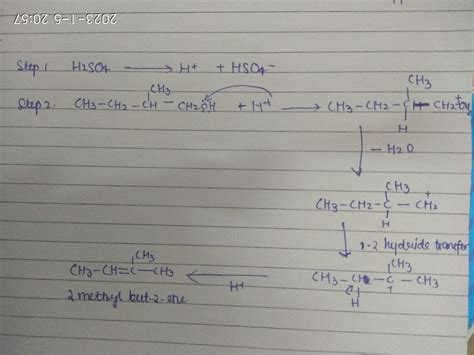 2023-1-5 20:57
Step 1 H2SO4 ⟶ H+ + HSO4-
CH3
CH3
Step 2. CH3-CH2-CH-CH2OH + H+ ⟶ CH3-CH2-C-CH2-
H
- H2O
CH3
CH3-CH2-C-CH2+
H
1-2 hydride transfer
CH3
CH3
CH3-CH=C-CH3 ⟵ CH3-CH-C-CH3
H+
H
2 methyl but-2-ene